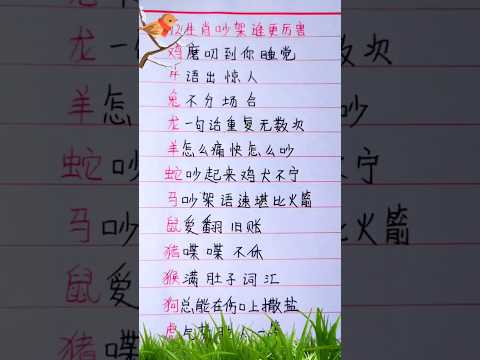 生肖吵架谁更厉害
鸡磨叨到你睡觉
牛语出惊人
兔不分场合
龙一句话重复无数次
羊怎么痛快怎么吵
蛇吵起来鸡犬不宁
马吵架语速堪比火箭
鼠爱翻旧账
猪喋喋不休
猴满肚子词汇
狗总能在伤口上撒盐
虎气势